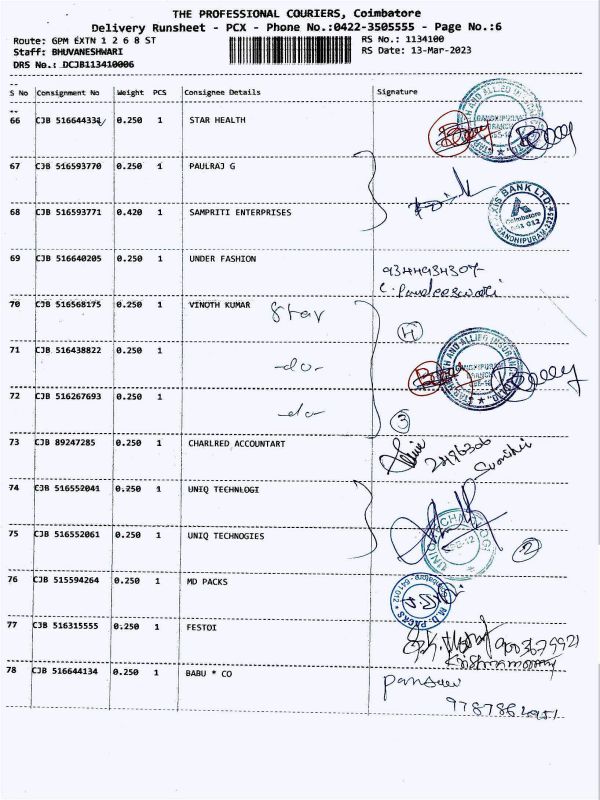 THE PROFESSIONAL COURIERS, Coimbatore
Delivery Runsheet - PCX - Phone No.:0422-3505555 - Page No.:6
Route: GPM EXTN 1 2 6 8 ST RS No.: 1134100
Staff: BHUVANESHWARI RS Date: 13-Mar-2023
DRS No.: DCJB113410006
S No Consignment No Weight PCS Consignee Details Signature
66 CJB 516644334 0.250 1 STAR HEALTH
67 CJB 516593770 0.250 1 PAULRAJ G
68 CJB 516593771 0.420 1 SAMPRITI ENTERPRISES
AXIS BANK LTD
Coimbatore
641 012
GANDHIPURAM
69 CJB 516640205 0.250 1 UNDER FASHION
9344934307
70 CJB 516568175 0.250 1 VINOTH KUMAR Star
4
71 CJB 516438822 0.250 1 -do-
72 CJB 516267693 0.250 1 -do-
3
73 CJB 89247285 0.250 1 CHARLRED ACCOUNTART
2496306
74 CJB 516552041 0.250 1 UNIQ TECHNLOGI
75 CJB 516552061 0.250 1 UNIQ TECHNOGIES
2
76 CJB 515594264 0.250 1 MD PACKS
M.D. PACKS
641 012
77 CJB 516315555 0.250 1 FESTOI
9003679921
Krishnamoorthy
78 CJB 516644134 0.250 1 BABU * CO